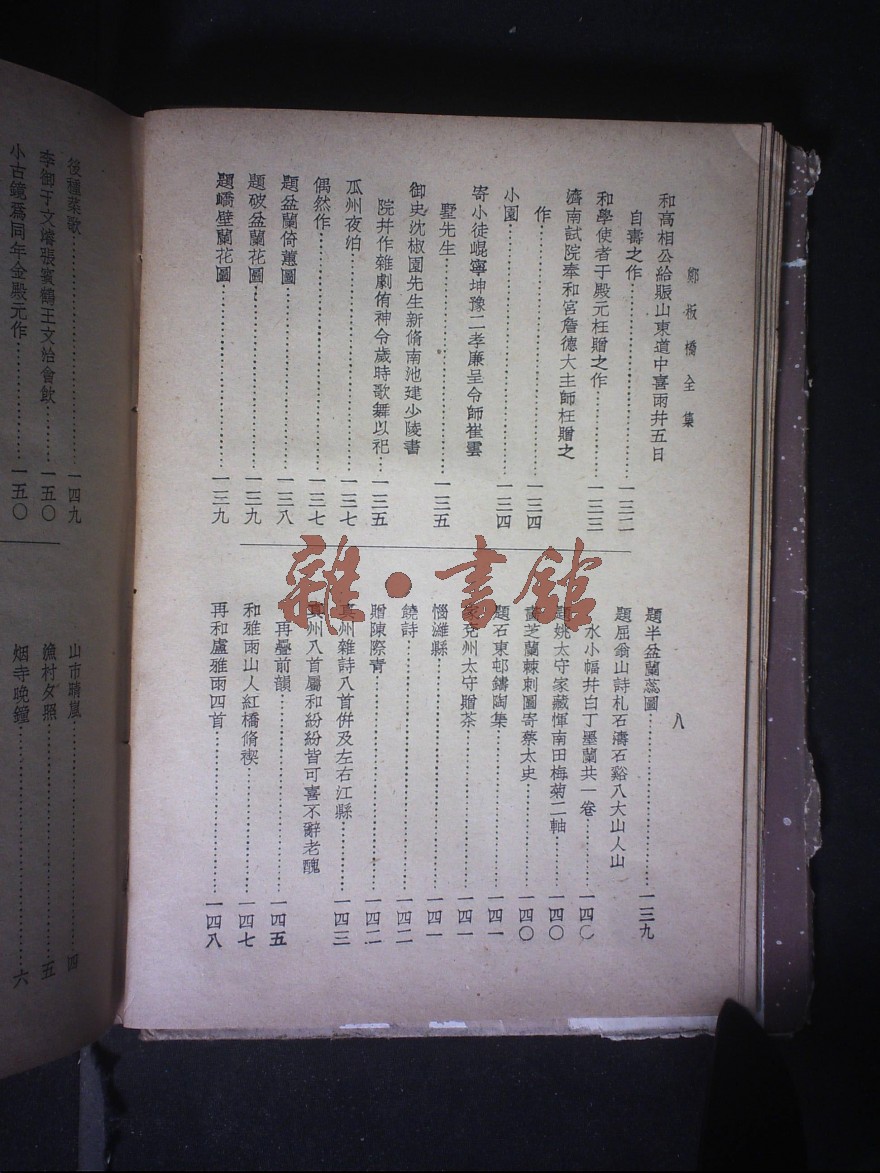 鄭板橋全集
八
和高相公給賑山東道中喜雨幷五日
自壽之作……一三二
和學使者于殿元枉贈之作……一三三
濟南試院奉和宮詹德大主師枉贈之
作……一三四
小園……一三四
寄小徒崐寧坤豫二孝廉呈令師崔雲
墅先生……一三五
御史沈椒園先生新脩南池建少陵書
院幷作雜劇侑神令歲時歌舞以祀……一三五
瓜州夜泊……一三七
偶然作……一三七
題盆蘭倚蕙圖……一三八
題破盆蘭花圖……一三九
題嶠壁蘭花圖……一三九
題半盆蘭蕊圖……一三九
題屈翁山詩札石濤石谿八大山人山
水小幅幷白丁墨蘭共一卷……一四〇
題姚太守家藏惲南田梅菊二軸……一四〇
畫芝蘭棘刺圖寄蔡太史……一四〇
題石東邨鑄陶集……一四一
兗州太守贈茶……一四一
惱濰縣……一四一
饒詩……一四二
贈陳際青……一四二
真州雜詩八首倂及左右江縣……一四三
真州八首屬和紛紛皆可喜不辭老醜
再疊前韻……一四五
和雅雨山人紅橋脩禊……一四七
再和盧雅雨四首……一四八
後種菜歌……一四九
李御于文濬張賓鶴王文治會飲……一五〇
小古鏡爲同年金殿元作……一五〇
山市晴嵐……四
漁村夕照……五
烟寺晚鐘……六
雜·書館